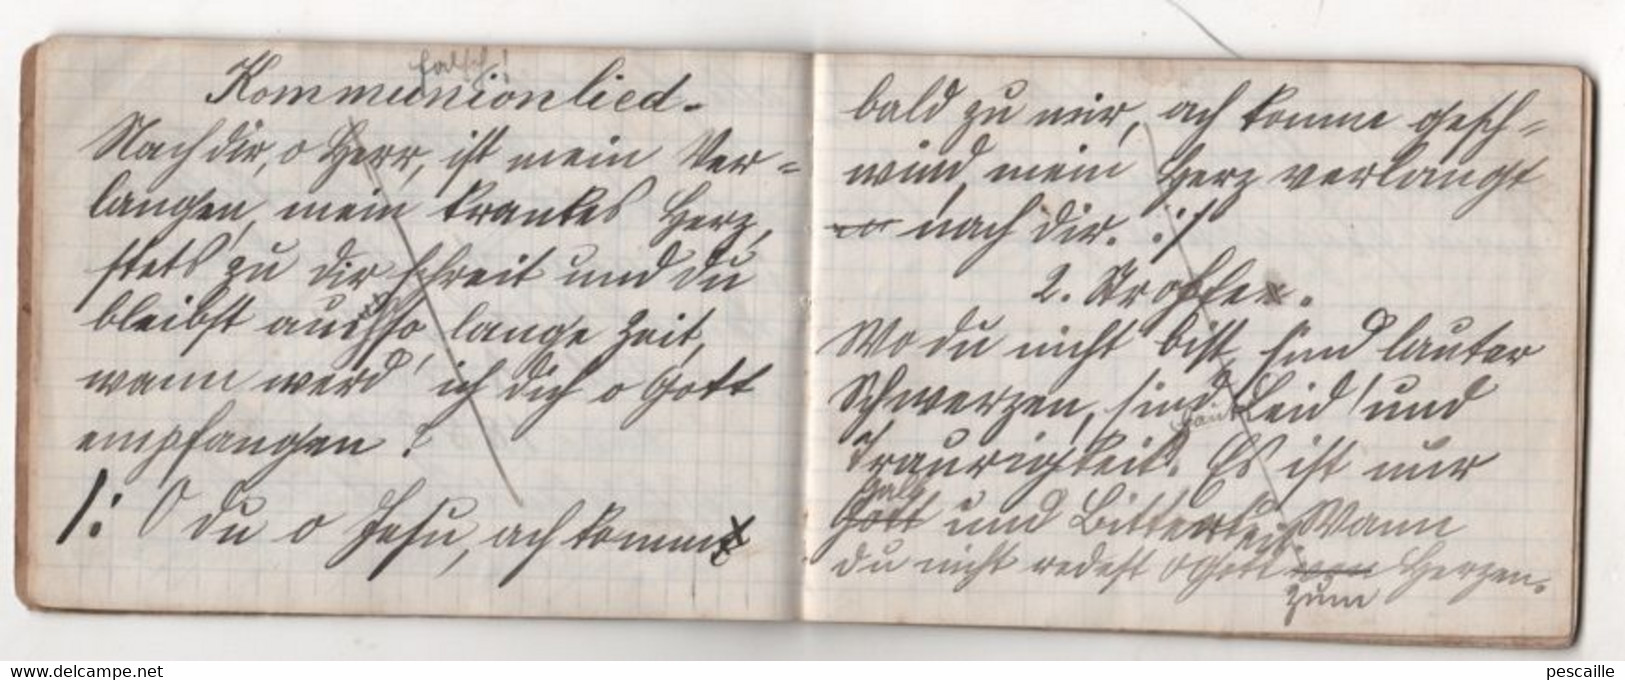 falsch!
Kommunionlied.
Nach dir, o Herr, ist mein Ver=
langen, mein krankes Herz,
stets zu dir schreit und du
bleibst aus so lange Zeit,
wann werd' ich dich o Gott
empfangen?
/: O du o Jesu, ach komm
bald zu mir, ach komme gesch=
wind, mein Herz verlangt
nach dir. :/
2. Strophe.
Wo du nicht bist, sind lauter
Schmerzen, sind Leid und
Traurigkeit. Es ist nur
Gall
Gott und Bitterkeit. Wann
du nicht redest o Gott von Herzen.
zum
pescaille